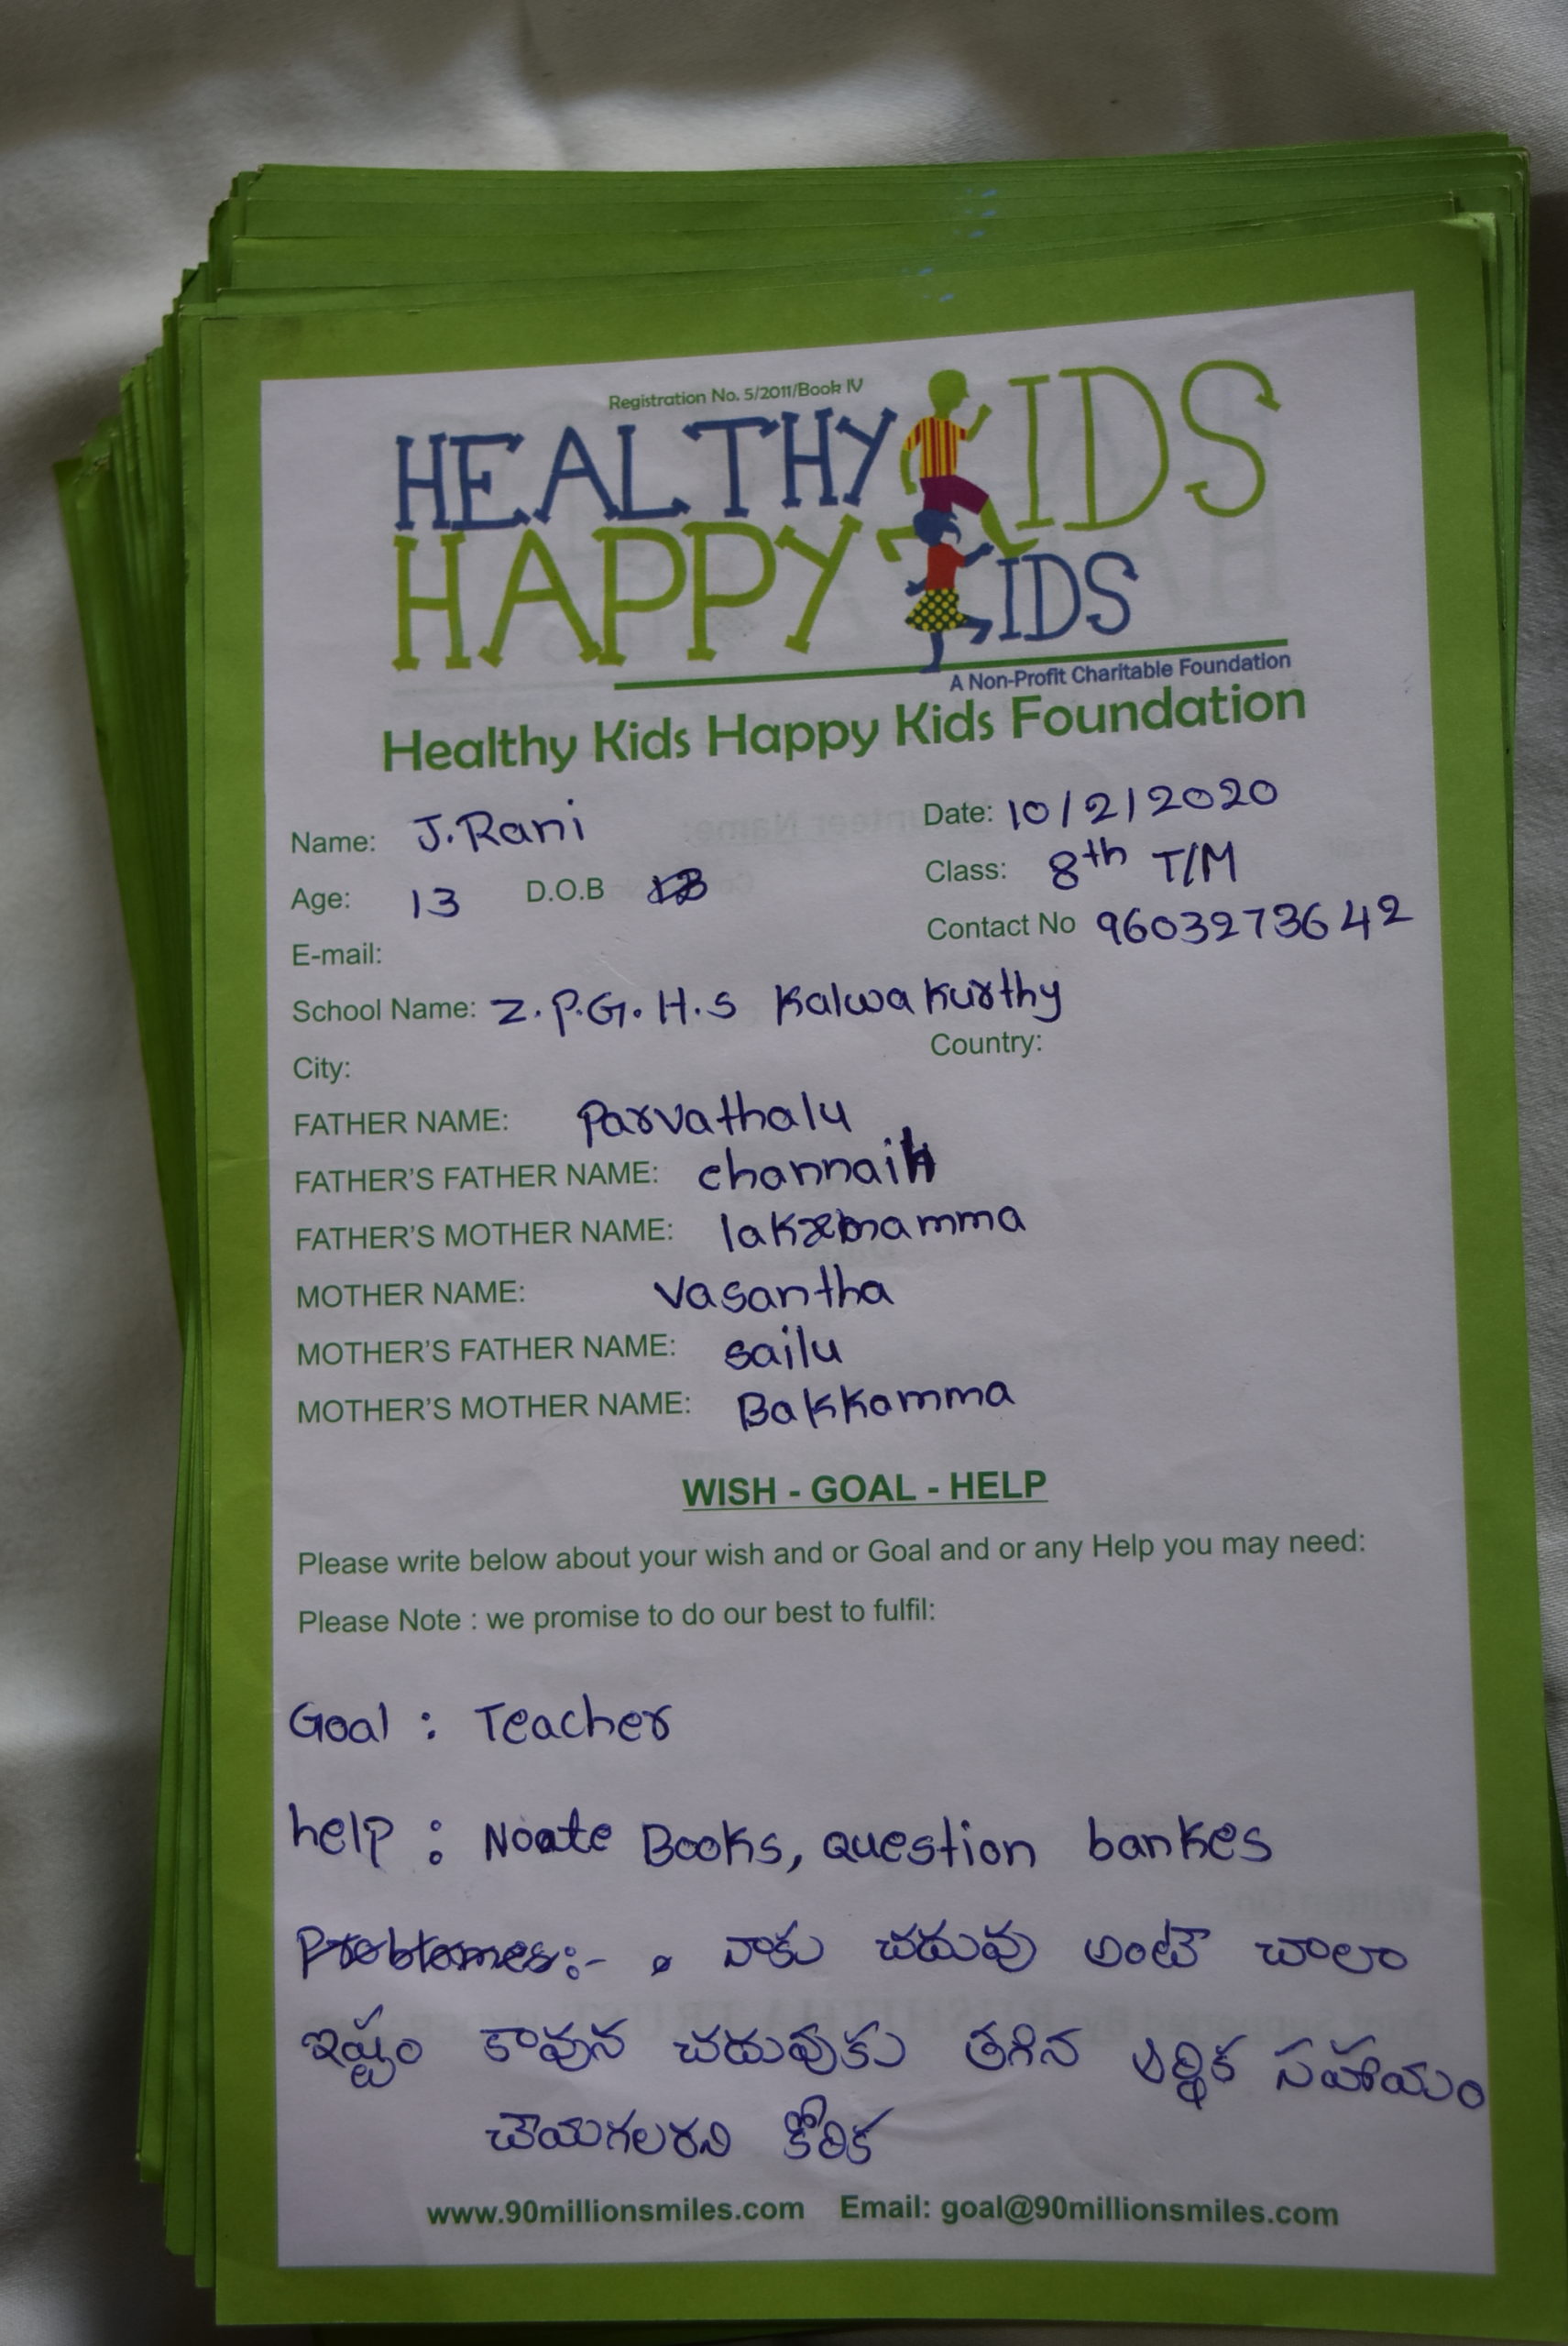 Registration No. 5/2011/Book IV
HEALTHY KIDS
HAPPY KIDS
A Non-Profit Charitable Foundation
Healthy Kids Happy Kids Foundation
Name: J.Rani Date: 10/2/2020
Age: 13 D.O.B Class: 8th T/M
E-mail: Contact No 9603273642
School Name: Z.P.G.H.S Kalwakurthy
City: Country:
FATHER NAME: Parvathalu
FATHER'S FATHER NAME: channaih
FATHER'S MOTHER NAME:
MOTHER NAME: Vasantha
MOTHER'S FATHER NAME: sailu
MOTHER'S MOTHER NAME: Bakkamma
WISH - GOAL - HELP
Please write below about your wish and or Goal and or any Help you may need:
Please Note : we promise to do our best to fulfil:
Goal : Teacher
help : Noate Books, question bankes
నాకు చదువు అంటే చాలా
ఇష్టం కావున చదువుకు తగిన ఆర్థిక సహాయం
చేయగలరని కోరిక
www.90millionsmiles.com Email: goal@90millionsmiles.com